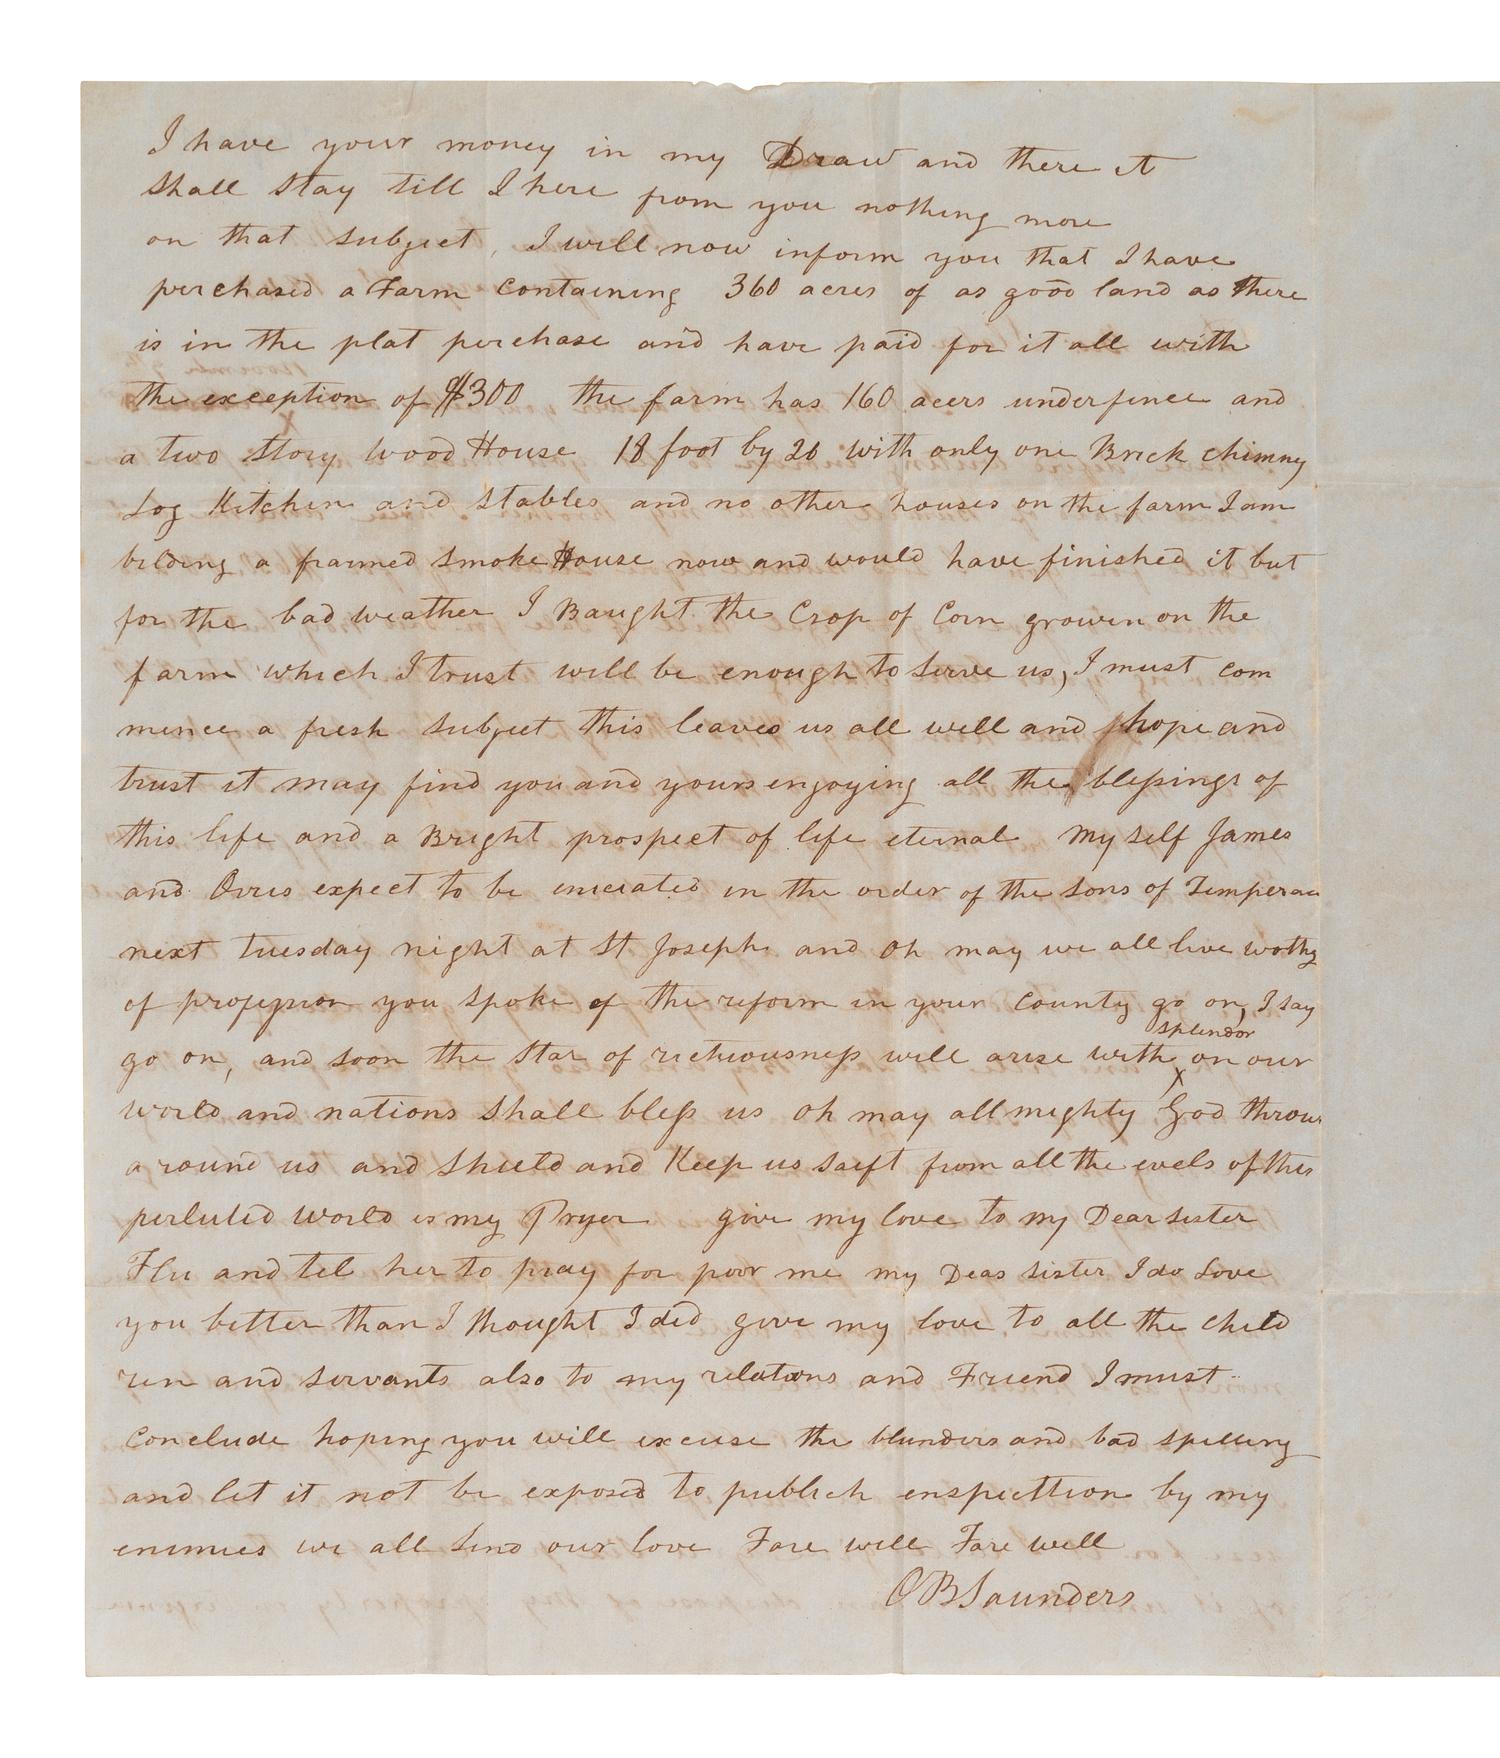 I have your money in my Draw and there it
shall stay till I here from you nothing more
on that subject, I will now inform you that I have
perchased a Farm containing 360 acres of as good land as there
is in the plat perchase and have paid for it all with
the exception of $300 the farm has 160 acers underfence and
a two story wood House 18 foot by 20 with only one Brick chimny
Log Kitchen and stables and no other houses on the farm I am
bilding a framed smoke House now and would have finished it but
for the bad weather I Baught the Crop of Corn growen on the
farm which I trust will be enough to serve us, I must com
mence a fresh subject this leaves us all well and hope and
trust it may find you and yours engoying all the blessings of
this life and a Bright prospect of life eternal my self James
and Orres expect to be eneciated in the order of the sons of Temperan
next tuesday night at St Josephs and oh may we all live wothy
of profession you spoke of the reform in your county go on, I say
go on, and soon the star of richiousness will arise with splendor on our
world and nations shall bless us oh may all mighty God throw
a round us and shield and Keep us saift from all the evels of this
perluted world is my Pryer give my love to my Dear sister
Flu and tel her to pray for poor me my Dear sister I do Love
you better than I thought I did give my love to all the child
ren and servants also to my relations and Friend I must
conclude hoping you will excuse the blunders and bad spelling
and let it not be exposed to publick enspecttion by my
enimies we all send our love Fare will Fare well
O B Saunders